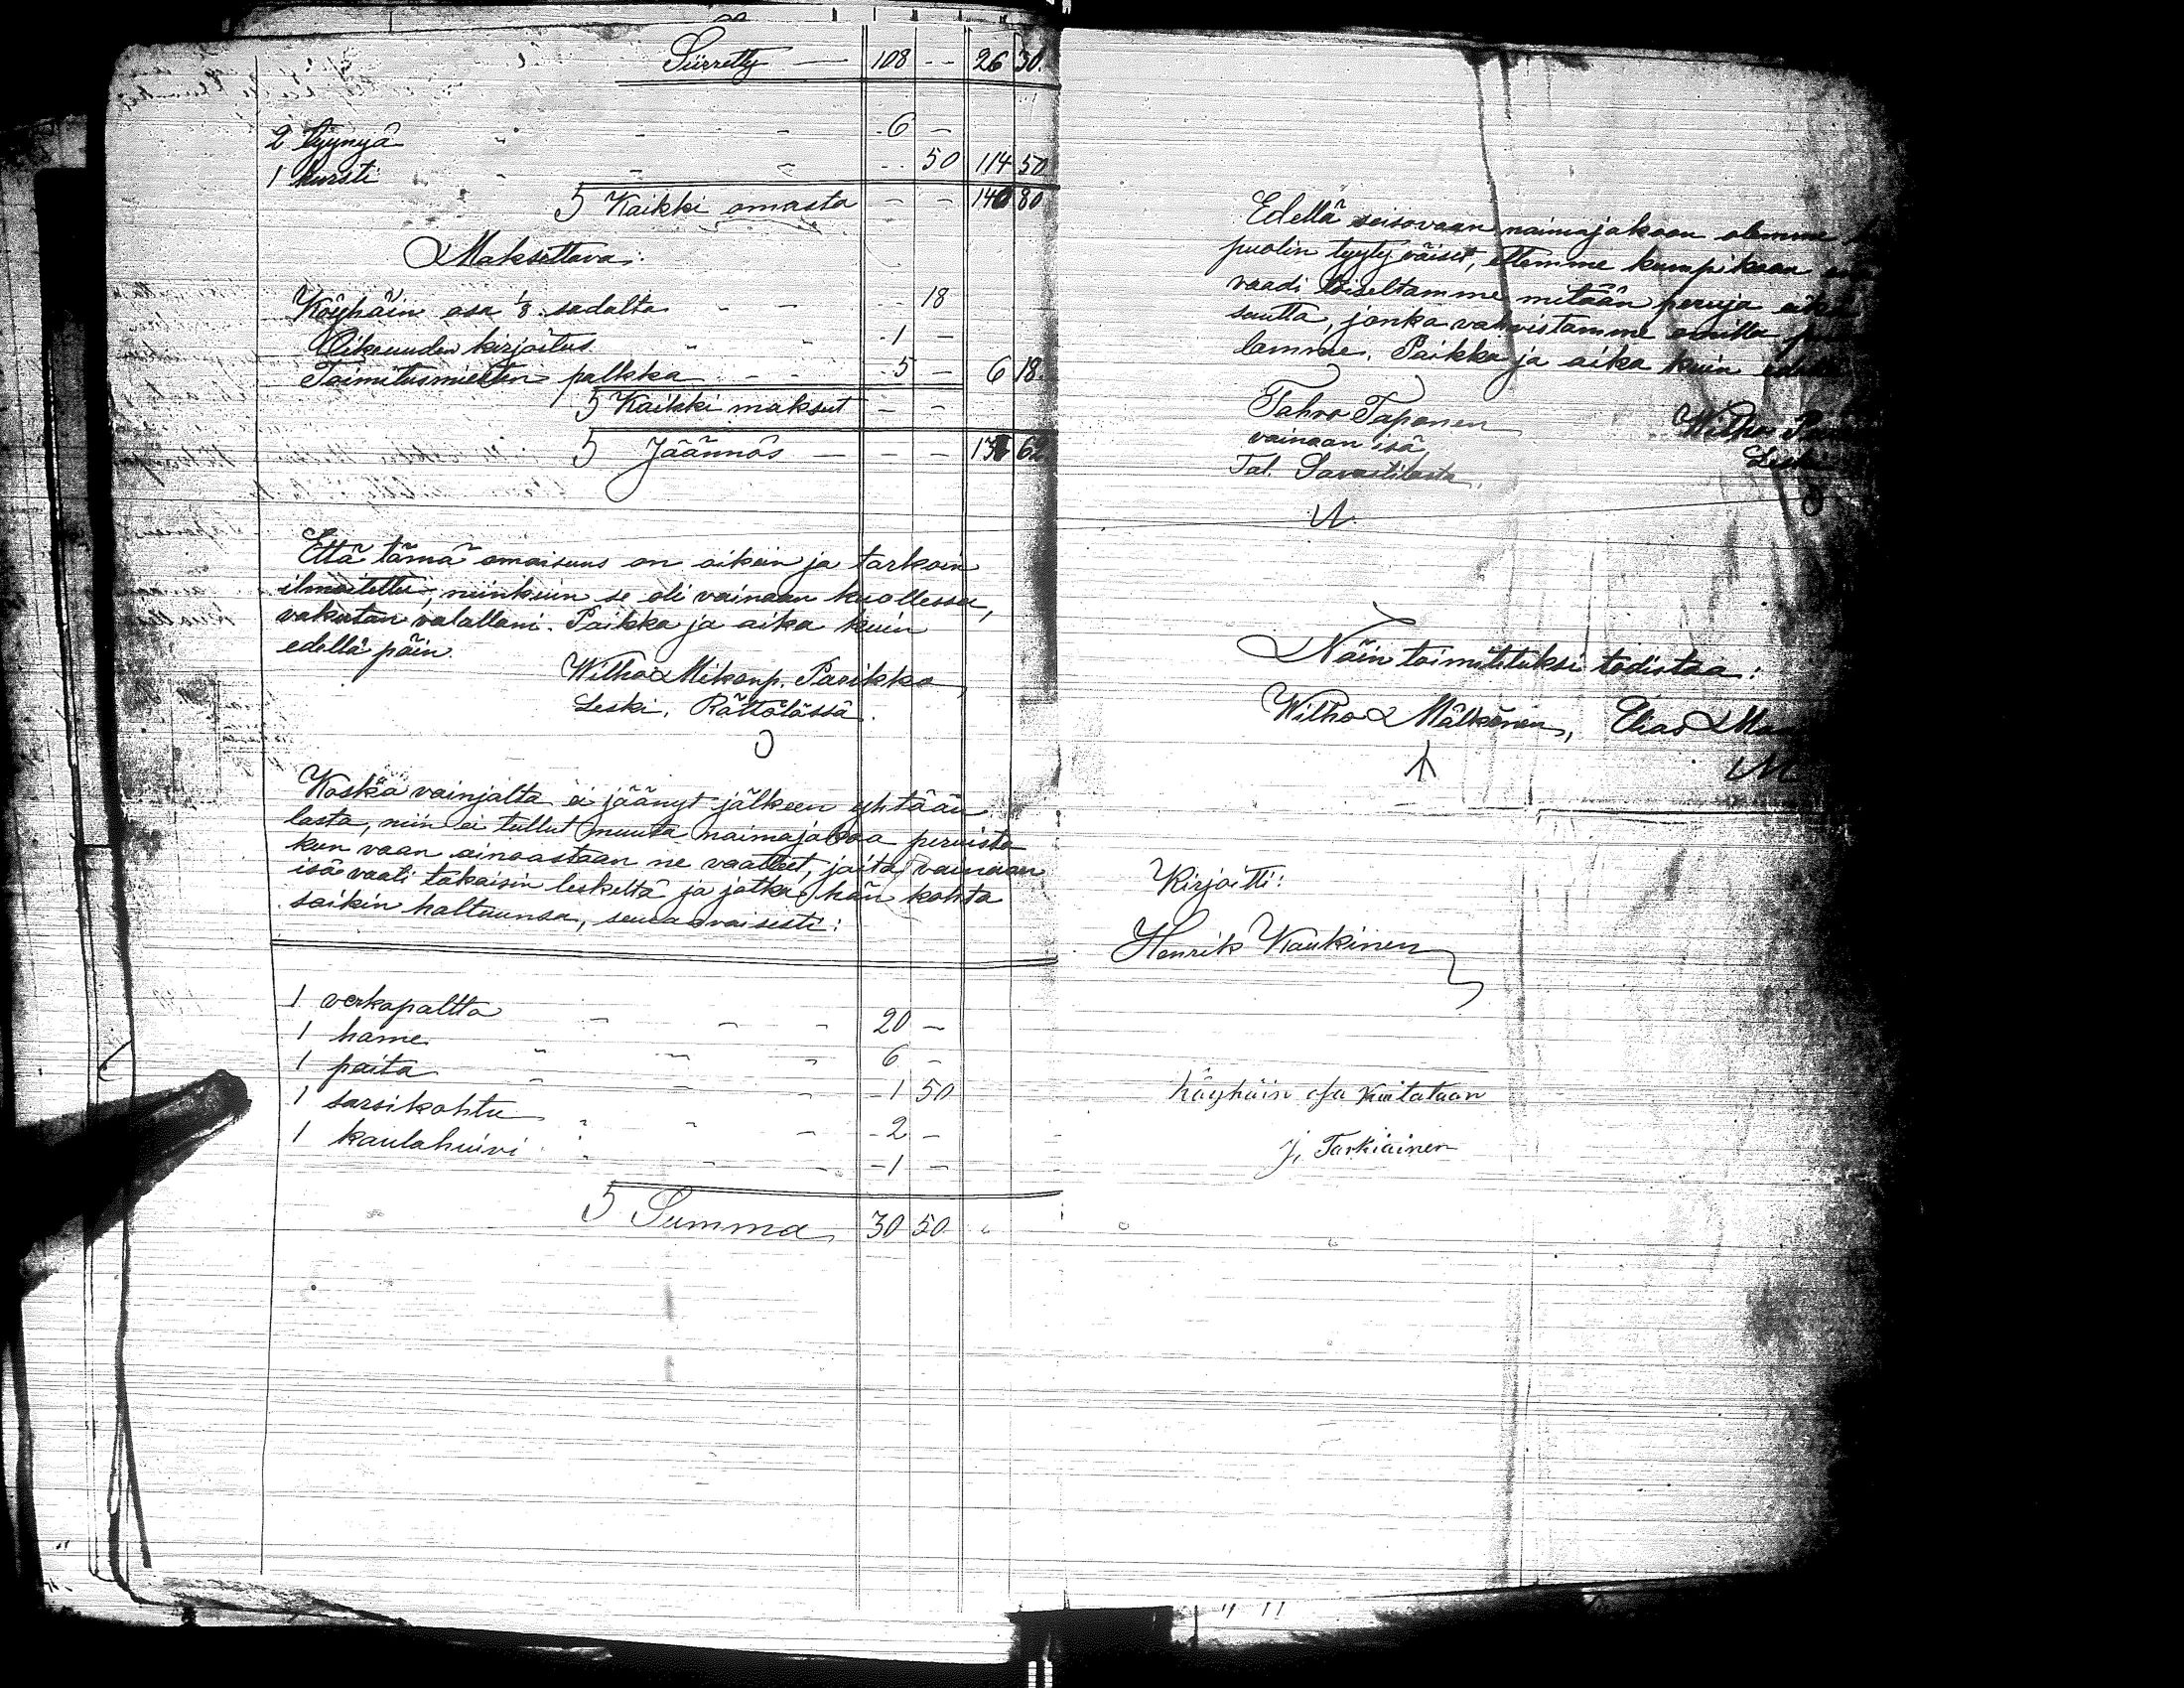 Siirretty — 108 - - 26 30.
2 tyynyä - - 6 —
1 hursti - - - 50 114 50
S Kaikki omasta — — 140 80
Maksettava:
Köyhäin osa 1/8 sadalta - - - 18
Oikeuuden kirjoitus - - 1 —
Toimitusmiesten palkka - - 5 — 6 18.
S Kaikki maksut — —
S Jäännös — — — 134 62
Että tämä omaisuus on oikein ja tarkoin
ilmoitettu, niinkuin se oli vainaan kuollessa,
vakutan valallani. Paikka ja aika kuin
edellä päin.
Wilho Mikonp. Pasikka,
Leski, Rättölässä.
Koska vainjalta ei jäänyt jälkeen yhtään
lasta, niin ei tullut muuta naimajakoa peruista
kun vaan ainoastaan ne vaatteet, joita vainaan
isä vaati takaisin leskeltä ja jotka hän kohta
saikin haltuunsa, seuraavaisesti:
1 verkapaltto - - - 20 —
1 hame - - - 6 -
1 paita - - - 1 50
1 sarsikohtu - - - 2 -
1 kaulahuivi - - - 1 —
S Summa 30 50
Edellä seisovaan naimajakoon olemme
puolin tyytyväiset, ettemme kumpikaan
vaadi toiseltamme mitään peruja
suutta, jonka vahvistamme omilla
lamme. Paikka ja aika kuin
Tahvo Taponen Wilho
vainaan isä Leski
Tal. Savastilasta.
Näin toimitetuksi todistaa:
Wilho Mälkönen, Elias
Kirjoitti:
Henrik Kaukinen
Köyhäin osa kuitataan
J. Tarkiainen